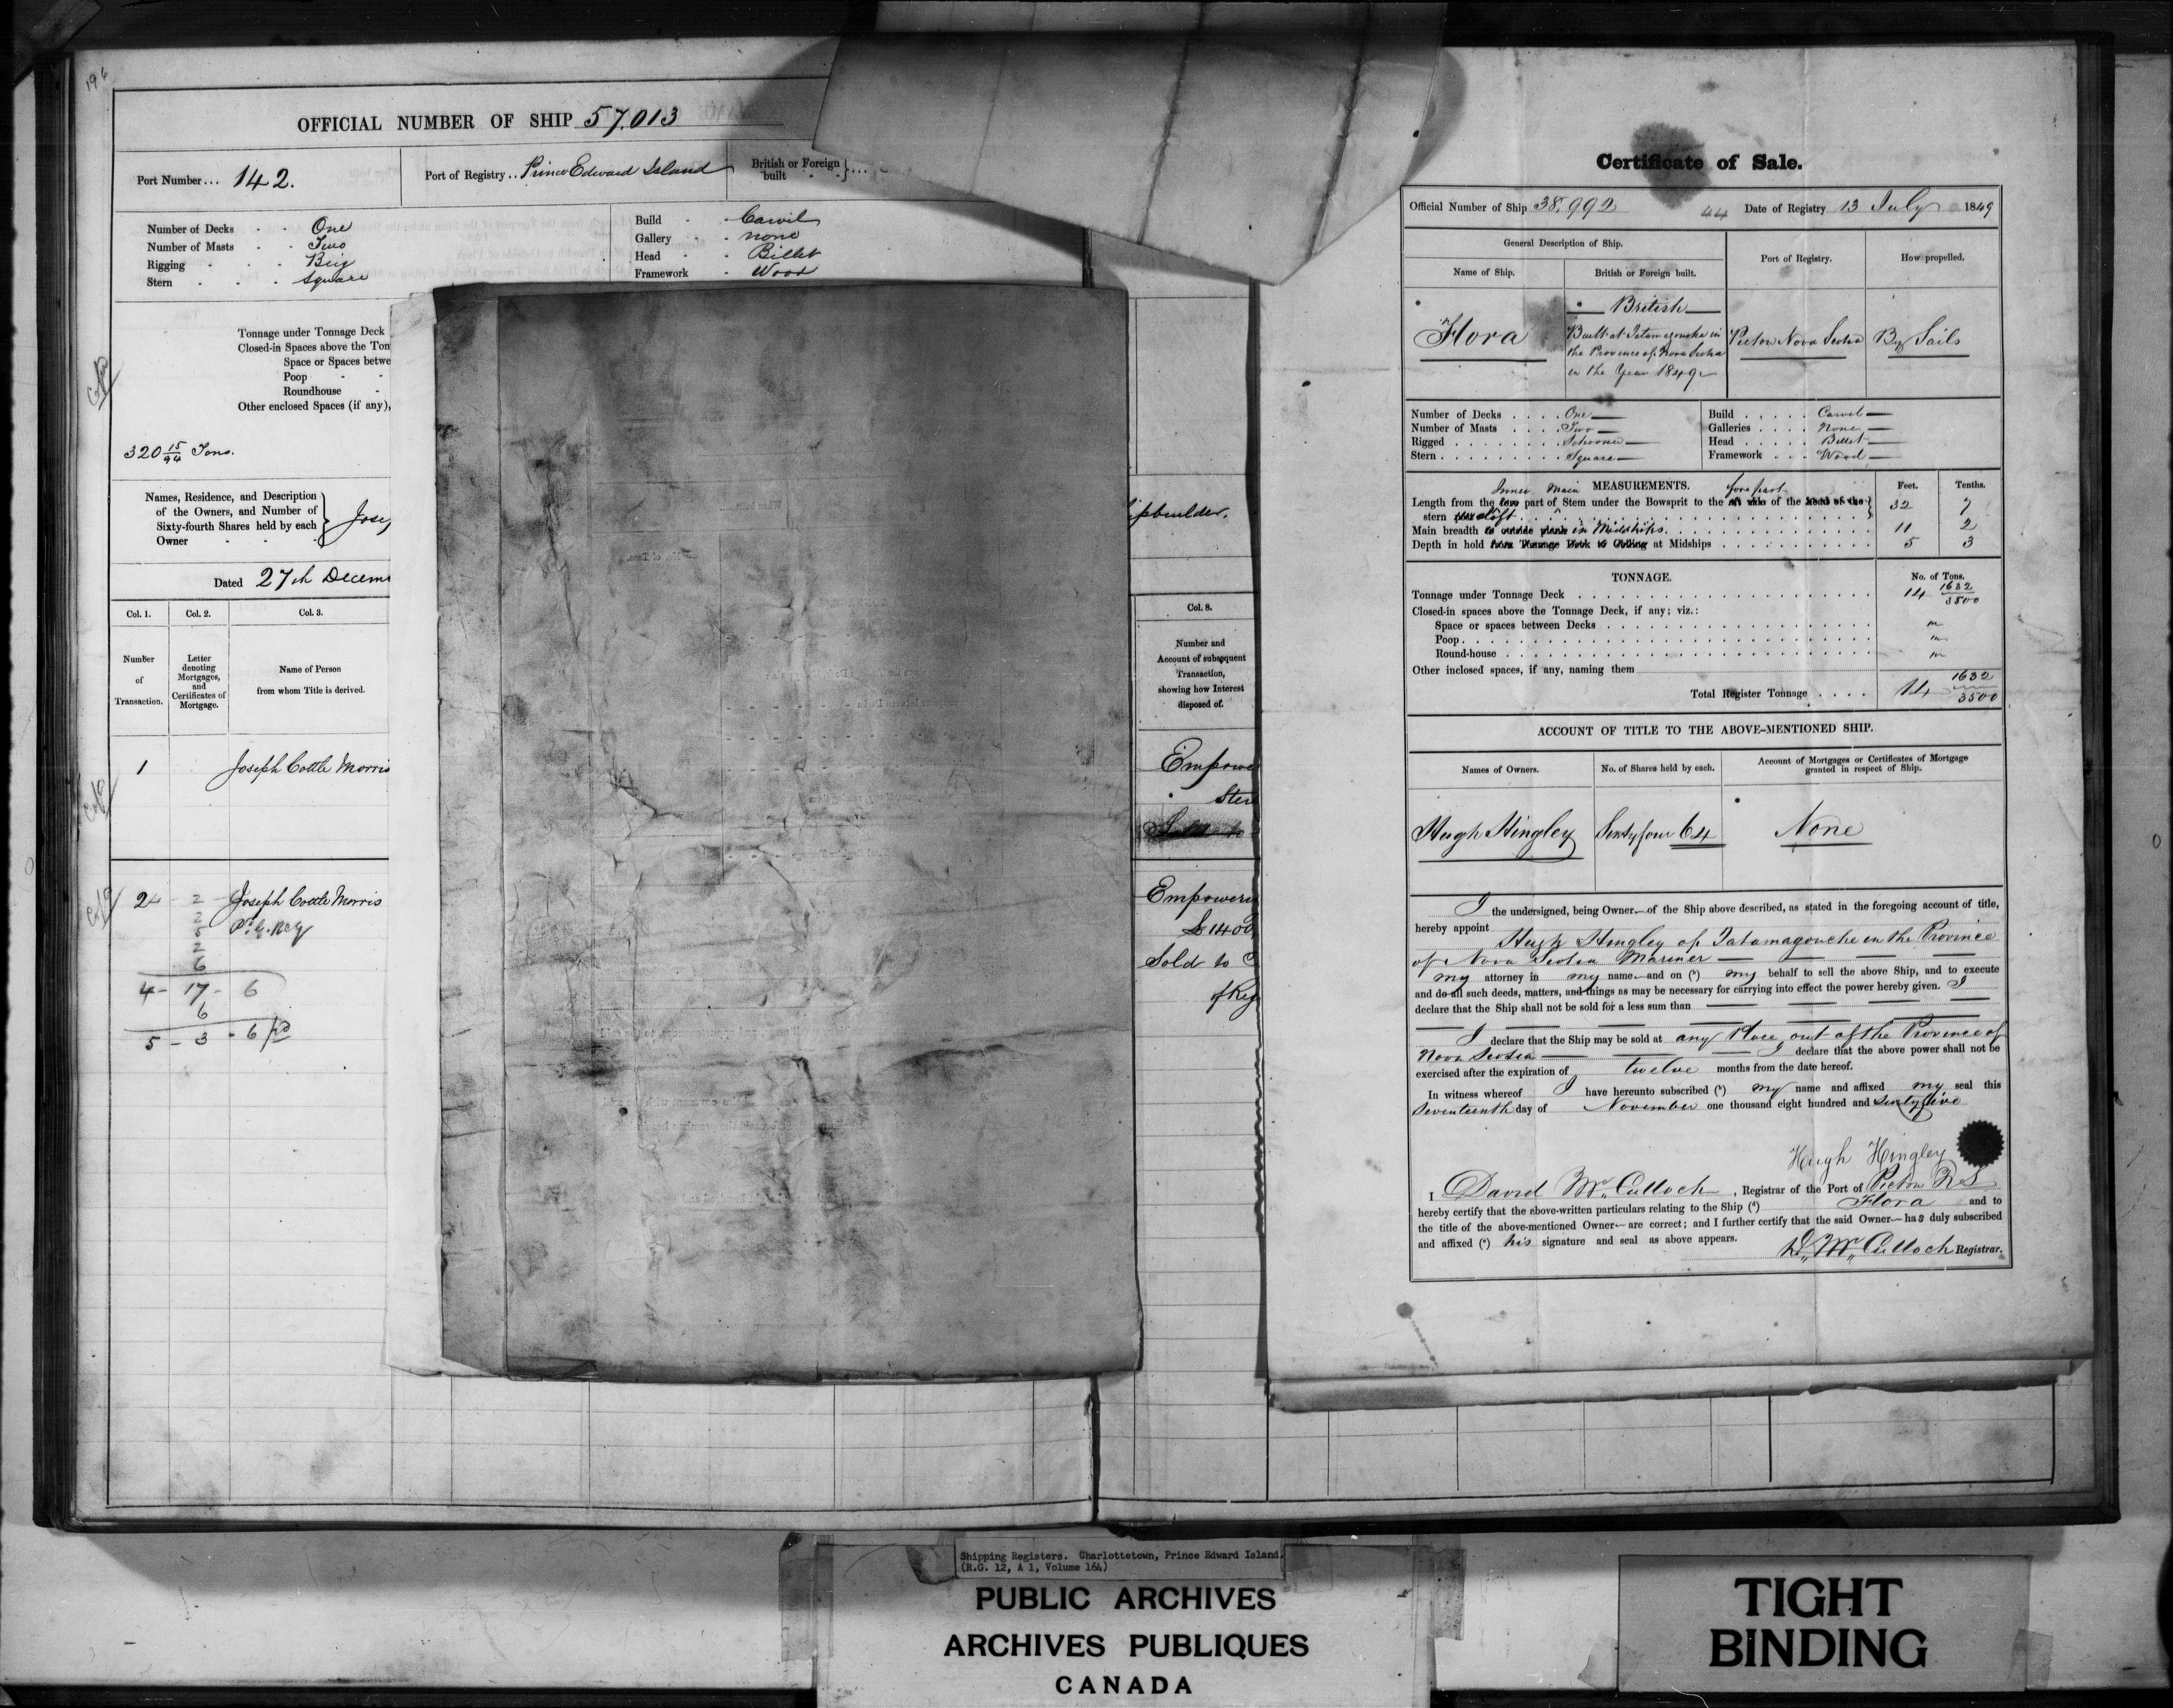 196
OFFICIAL NUMBER OF SHIP 57.013
Port Number... 142.
Port of Registry.. Prince Edward Island
British or Foreign built
Number of Decks - - One
Number of Masts - - Two
Rigging - - - Brig
Stern - - - Square
Build - - Carvil
Gallery - - none
Head - - Billet
Framework - Wood
Tonnage under Tonnage Deck
Closed-in Spaces above the Ton
Space or Spaces betwe
Poop - -
Roundhouse -
Other enclosed Spaces (if any),
320 15/94 Tons.
Names, Residence, and Description
of the Owners, and Number of
Sixty-fourth Shares held by each
Owner - - -
Jose
ipbuilder.
Dated 27th Decem
Col. 1. Col. 2. Col. 3.
Number of Transaction.
Letter denoting Mortgages, and Certificates of Mortgage.
Name of Person from whom Title is derived.
Col. 8.
Number and
Account of subsequent
Transaction,
showing how Interest
disposed of.
1 Joseph Cottle Morris
Empowe
Ste
2 Joseph Cottle Morris
2
2
5
2
6
4 - 17 - 6
6
5 - 3 - 6
Empowerin
£1400
Sold to C
of Reg
Certificate of Sale.
Official Number of Ship 38,992 44 Date of Registry 13 July 1849
General Description of Ship.
Port of Registry.
How propelled.
Name of Ship.
British or Foreign built.
Flora
British
Built at Tatamagouche in
the Province of Nova Scotia
in the Year 1849
Pictou Nova Scotia
By Sails
Number of Decks . . . . One
Number of Masts . . . . Two
Rigged . . . . . . . . Schooner
Stern . . . . . . . . . Square
Build . . . . . Carvel
Galleries . . . . None
Head . . . . . Billet
Framework . . . Wood
MEASUREMENTS. Feet. Tenths.
Inner Main fore part
Length from the fore part of Stem under the Bowsprit to the aft side of the head of the
stern post aloft 32 7
Main breadth to outside plank in Midships 11 2
Depth in hold from Tonnage Deck to Ceiling at Midships 5 3
TONNAGE. No. of Tons.
Tonnage under Tonnage Deck 14 1632/3500
Closed-in spaces above the Tonnage Deck, if any; viz.:
Space or spaces between Decks
Poop
Round-house
Other inclosed spaces, if any, naming them
Total Register Tonnage . . . . 14 1632/3500
ACCOUNT OF TITLE TO THE ABOVE-MENTIONED SHIP.
Names of Owners.
No. of Shares held by each.
Account of Mortgages or Certificates of Mortgage
granted in respect of Ship.
Hugh Hingley Sixty four 64 None
I the undersigned, being Owner of the Ship above described, as stated in the foregoing account of title,
hereby appoint Hugh Hingley of Tatamagouche in the Province
of Nova Scotia Mariner
my attorney in my name and on (a) my behalf to sell the above Ship, and to execute
and do all such deeds, matters, and things as may be necessary for carrying into effect the power hereby given. I
declare that the Ship shall not be sold for a less sum than
I declare that the Ship may be sold at any Place out of the Province of
Nova Scotia I declare that the above power shall not be
exercised after the expiration of twelve months from the date hereof.
In witness whereof I have hereunto subscribed (b) my name and affixed my seal this
Seventeenth day of November one thousand eight hundred and sixty five
Hugh Hingley
I David McCulloch, Registrar of the Port of Pictou N S
hereby certify that the above-written particulars relating to the Ship (d) Flora and to
the title of the above-mentioned Owner are correct; and I further certify that the said Owner has duly subscribed
and affixed (e) his signature and seal as above appears.
D. McCulloch Registrar.
Shipping Registers. Charlottetown, Prince Edward Island.
(R.G. 12, A 1, Volume 164)
PUBLIC ARCHIVES
ARCHIVES PUBLIQUES
CANADA
TIGHT
BINDING